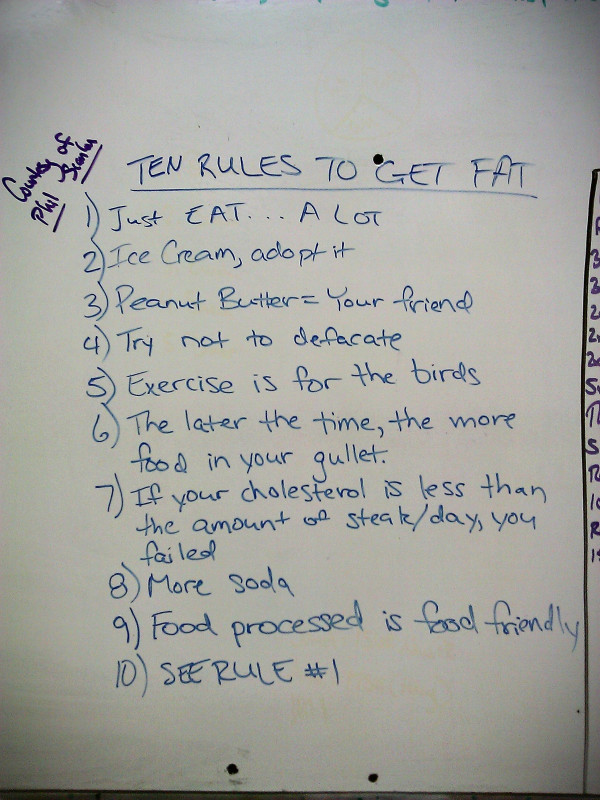 Courtesy of
Phil
TEN RULES TO GET FAT
1) Just EAT... A LOT
2) Ice Cream, adopt it
3) Peanut Butter = Your friend
4) Try not to defacate
5) Exercise is for the birds
6) The later the time, the more
food in your gullet.
7) If your cholesterol is less than
the amount of steak/day, you
failed
8) More soda
9) Food processed is food friendly
10) SEE RULE #1